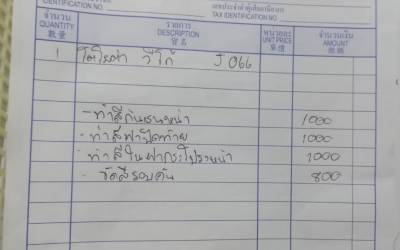 IDENTIFICATION NO.
เลขประจำตัวผู้เสียภาษีอากร
TAX IDENTIFICATION NO.
จำนวน
QUANTITY
數量
รายการ
DESCRIPTION
貨名
หน่วยละ
UNIT PRICE
單價
จำนวนเงิน
AMOUNT
銀碼
1 โตโยต้า วีโก้ J 066
- ทำสีกันชนหน้า 1000
- ทำสีฝาปิดท้าย 1000
- ทำสีในฝากระโปรงหน้า 1000
- ขัดสีรอบคัน 800